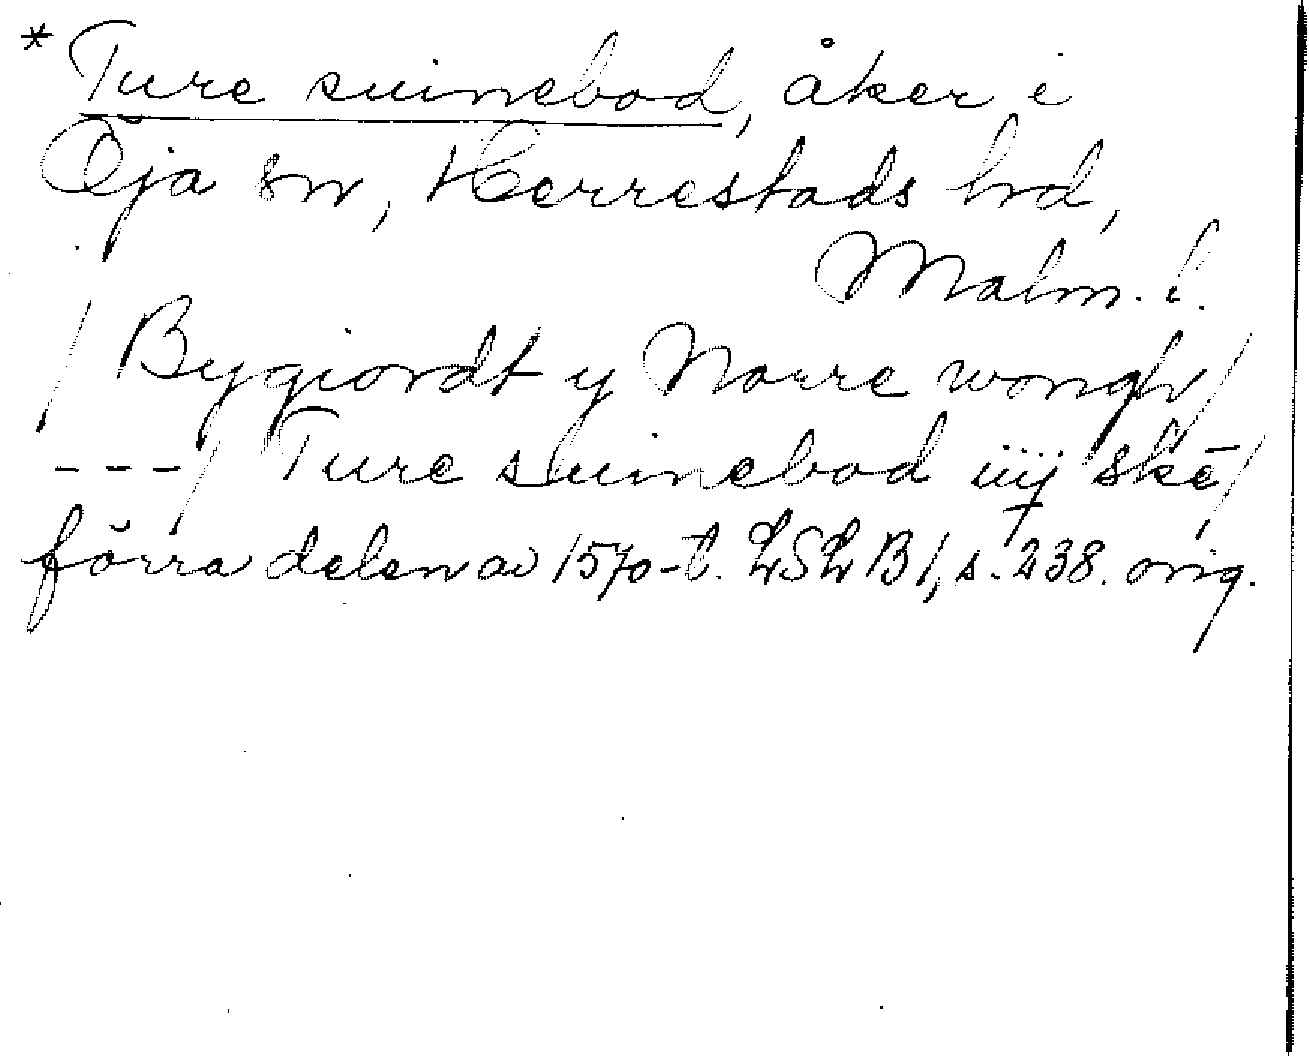 * Ture suinebod, åker i
Öja sn, Herrestads hrd,
Malm. l.
/ Bygiordt y Norre wongh /
--- / Ture suinebod iiij skē /
förra delen av 1570-t. LSL B 1, s. 238. orig.